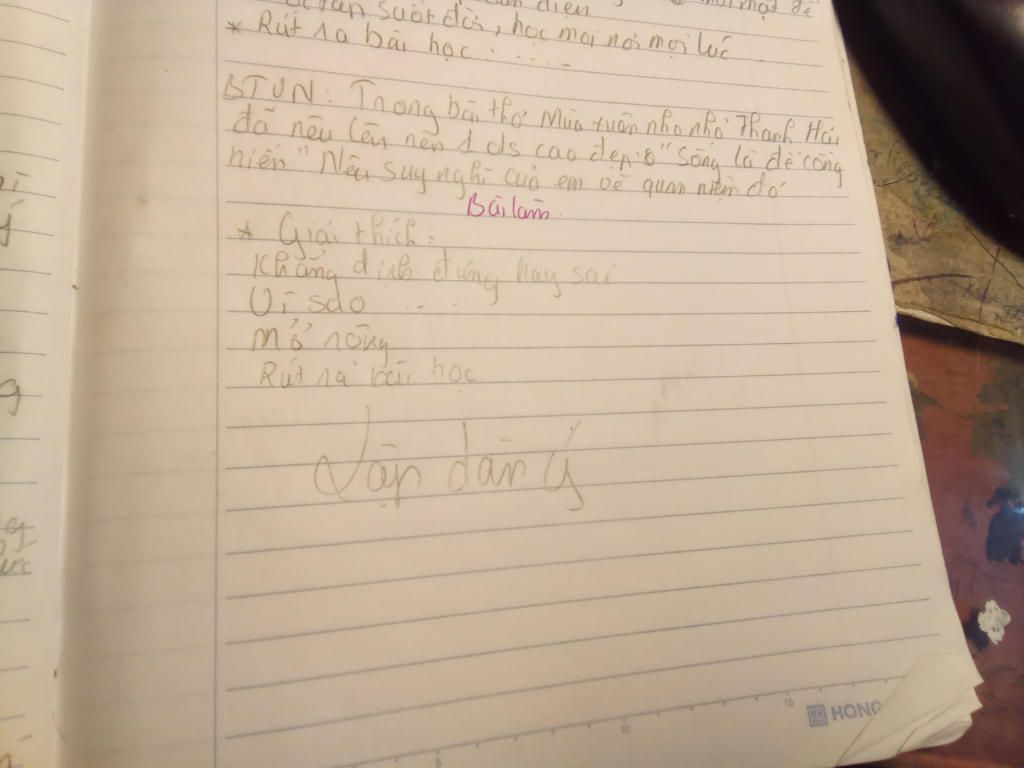 suốt đời, học mọi nơi mọi lúc
* Rút ra bài học .....
BTVN: Trong bài thơ Mùa xuân nho nhỏ Thanh Hải
đã nêu lên nên 1 ds cao đẹp "Sống là để cống
hiến" Nêu suy nghĩ của em về quan niệm đó
Bài làm
* Giải thích:
Khẳng định đúng hay sai
Vì sao ....
Mở rộng
Rút ra bài học
Lập dàn ý
5
10
15
HONG